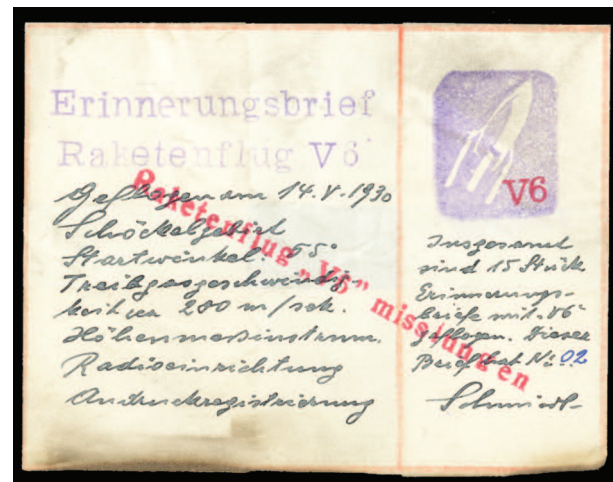 Erinnerungsbrief
Raketenflug V6
Geflogen am 14.V.1930
Schöckelgebiet
Startwinkel: 55°
Treibgasgeschwindig
keit ca 280 m/sek.
Höhenmeßinstrum.
Radioeinrichtung
Andruckregistrierung
Raketenflug „V6" misslungen
V6
Insgesamt
sind 15 Stück
Erinnerungs-
briefe mit V6
geflogen. Dieser
Brief hat Nr. 02
Schmiedl